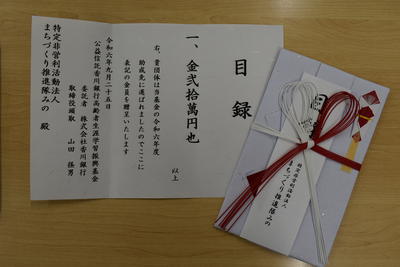 目録
一、金弐拾萬円也
以上
右、貴団体は当基金の令和六年度
助成先に選ばれましたのでここに
表記の金員を贈呈いたします
令和六年九月二十五日
公益信託香川銀行高齢者生涯学習振興基金
委託者 株式会社香川銀行
取締役頭取 山田 径男
特定非営利活動法人
まちづくり推進隊みの 殿
目録
特定非営利活動法人
まちづくり推進隊みの